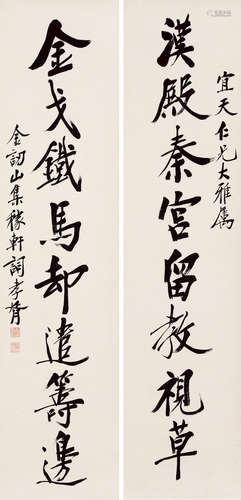 宜天仁兄大雅属
漢殿秦宮留教視草
金戈鐵馬却遣籌邊
金訒山集稼軒詞孝胥